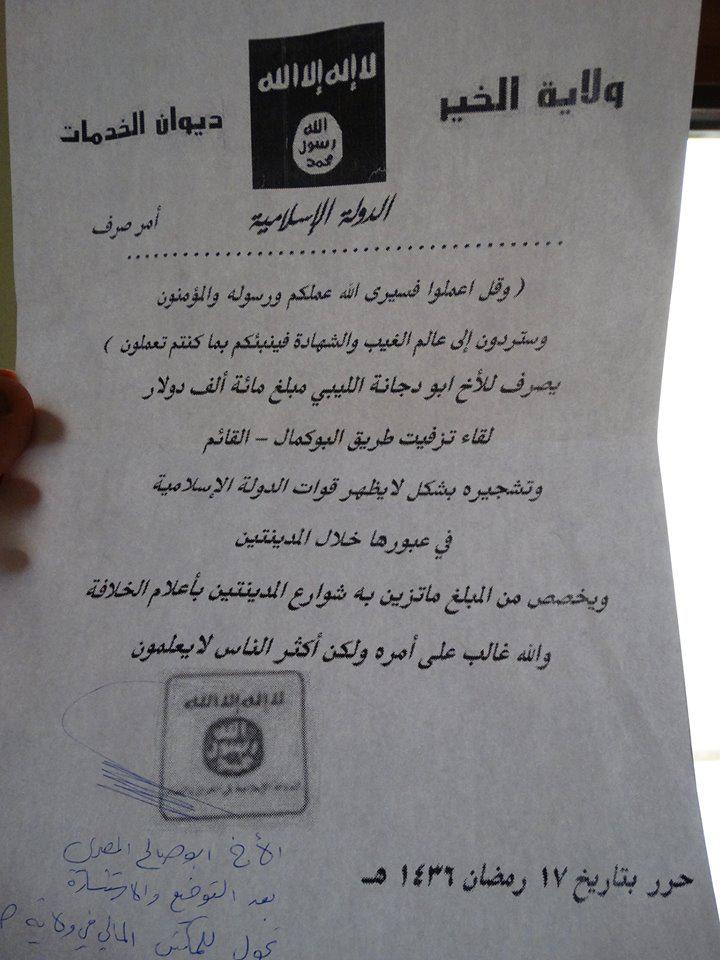 ولاية الخير
لا إله إلا الله
الله
رسول
محمد
ديوان الخدمات
الدولة الإسلامية
أمر صرف
( وقل اعملوا فسيرى الله عملكم ورسوله والمؤمنون
وستردون إلى عالم الغيب والشهادة فينبئكم بما كنتم تعملون )
يصرف للأخ ابو دجانة الليبي مبلغ مائة ألف دولار
لقاء تزفيت طريق البوكمال – القائم
وتشجيره بشكل لايظهر قوات الدولة الإسلامية
في عبورها خلال المدينتين
ويخصص من المبلغ ماتزين به شوارع المدينتين بأعلام الخلافة
والله غالب على أمره ولكن أكثر الناس لايعلمون
لا إله إلا الله
حرر بتاريخ ١٧ رمضان ١٤٣٦ هـ
الأخ ابو صالح المصري
بعد التوقيع والاستشارة
تحول للمكتب المالي في ولاية